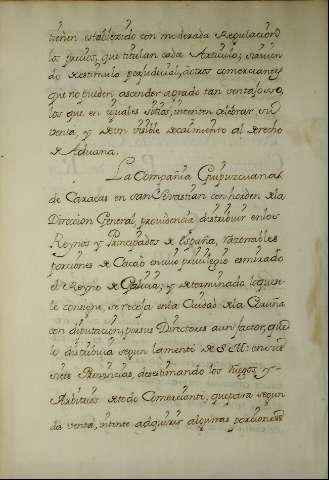 tienen establecido con moderada Regulacion
los precios, que titulan cada Articulo; sirvien
do de estimulo perjudicial, a otros comerciantes
que no pueden ascender a grado tan ventajoso,
los que en iguales sitios, intenten celebrar su
venta, y de un visible decaimiento al derecho
de Aduana.
La Compañia Guipuzcuana
de Caracas en San Sevastian con horden de la
Direccion General, providencia distribuir en los
Reynos y Principados de España, razonables
porciones de Cacao en cuio privilegio es mirado
el Reyno de Galicia; y determinado lo que se
le consigne, se receja en la Ciudad de la Coruña
con diputacion, por sus Directores a un factor, que
lo distribuia segun la mente de S. M. en sus
siete Provincias, desestimando los Ruegos y
Arbitrios de todo Comerciante, que para segun
da venta, intente adquirir algunas porciones